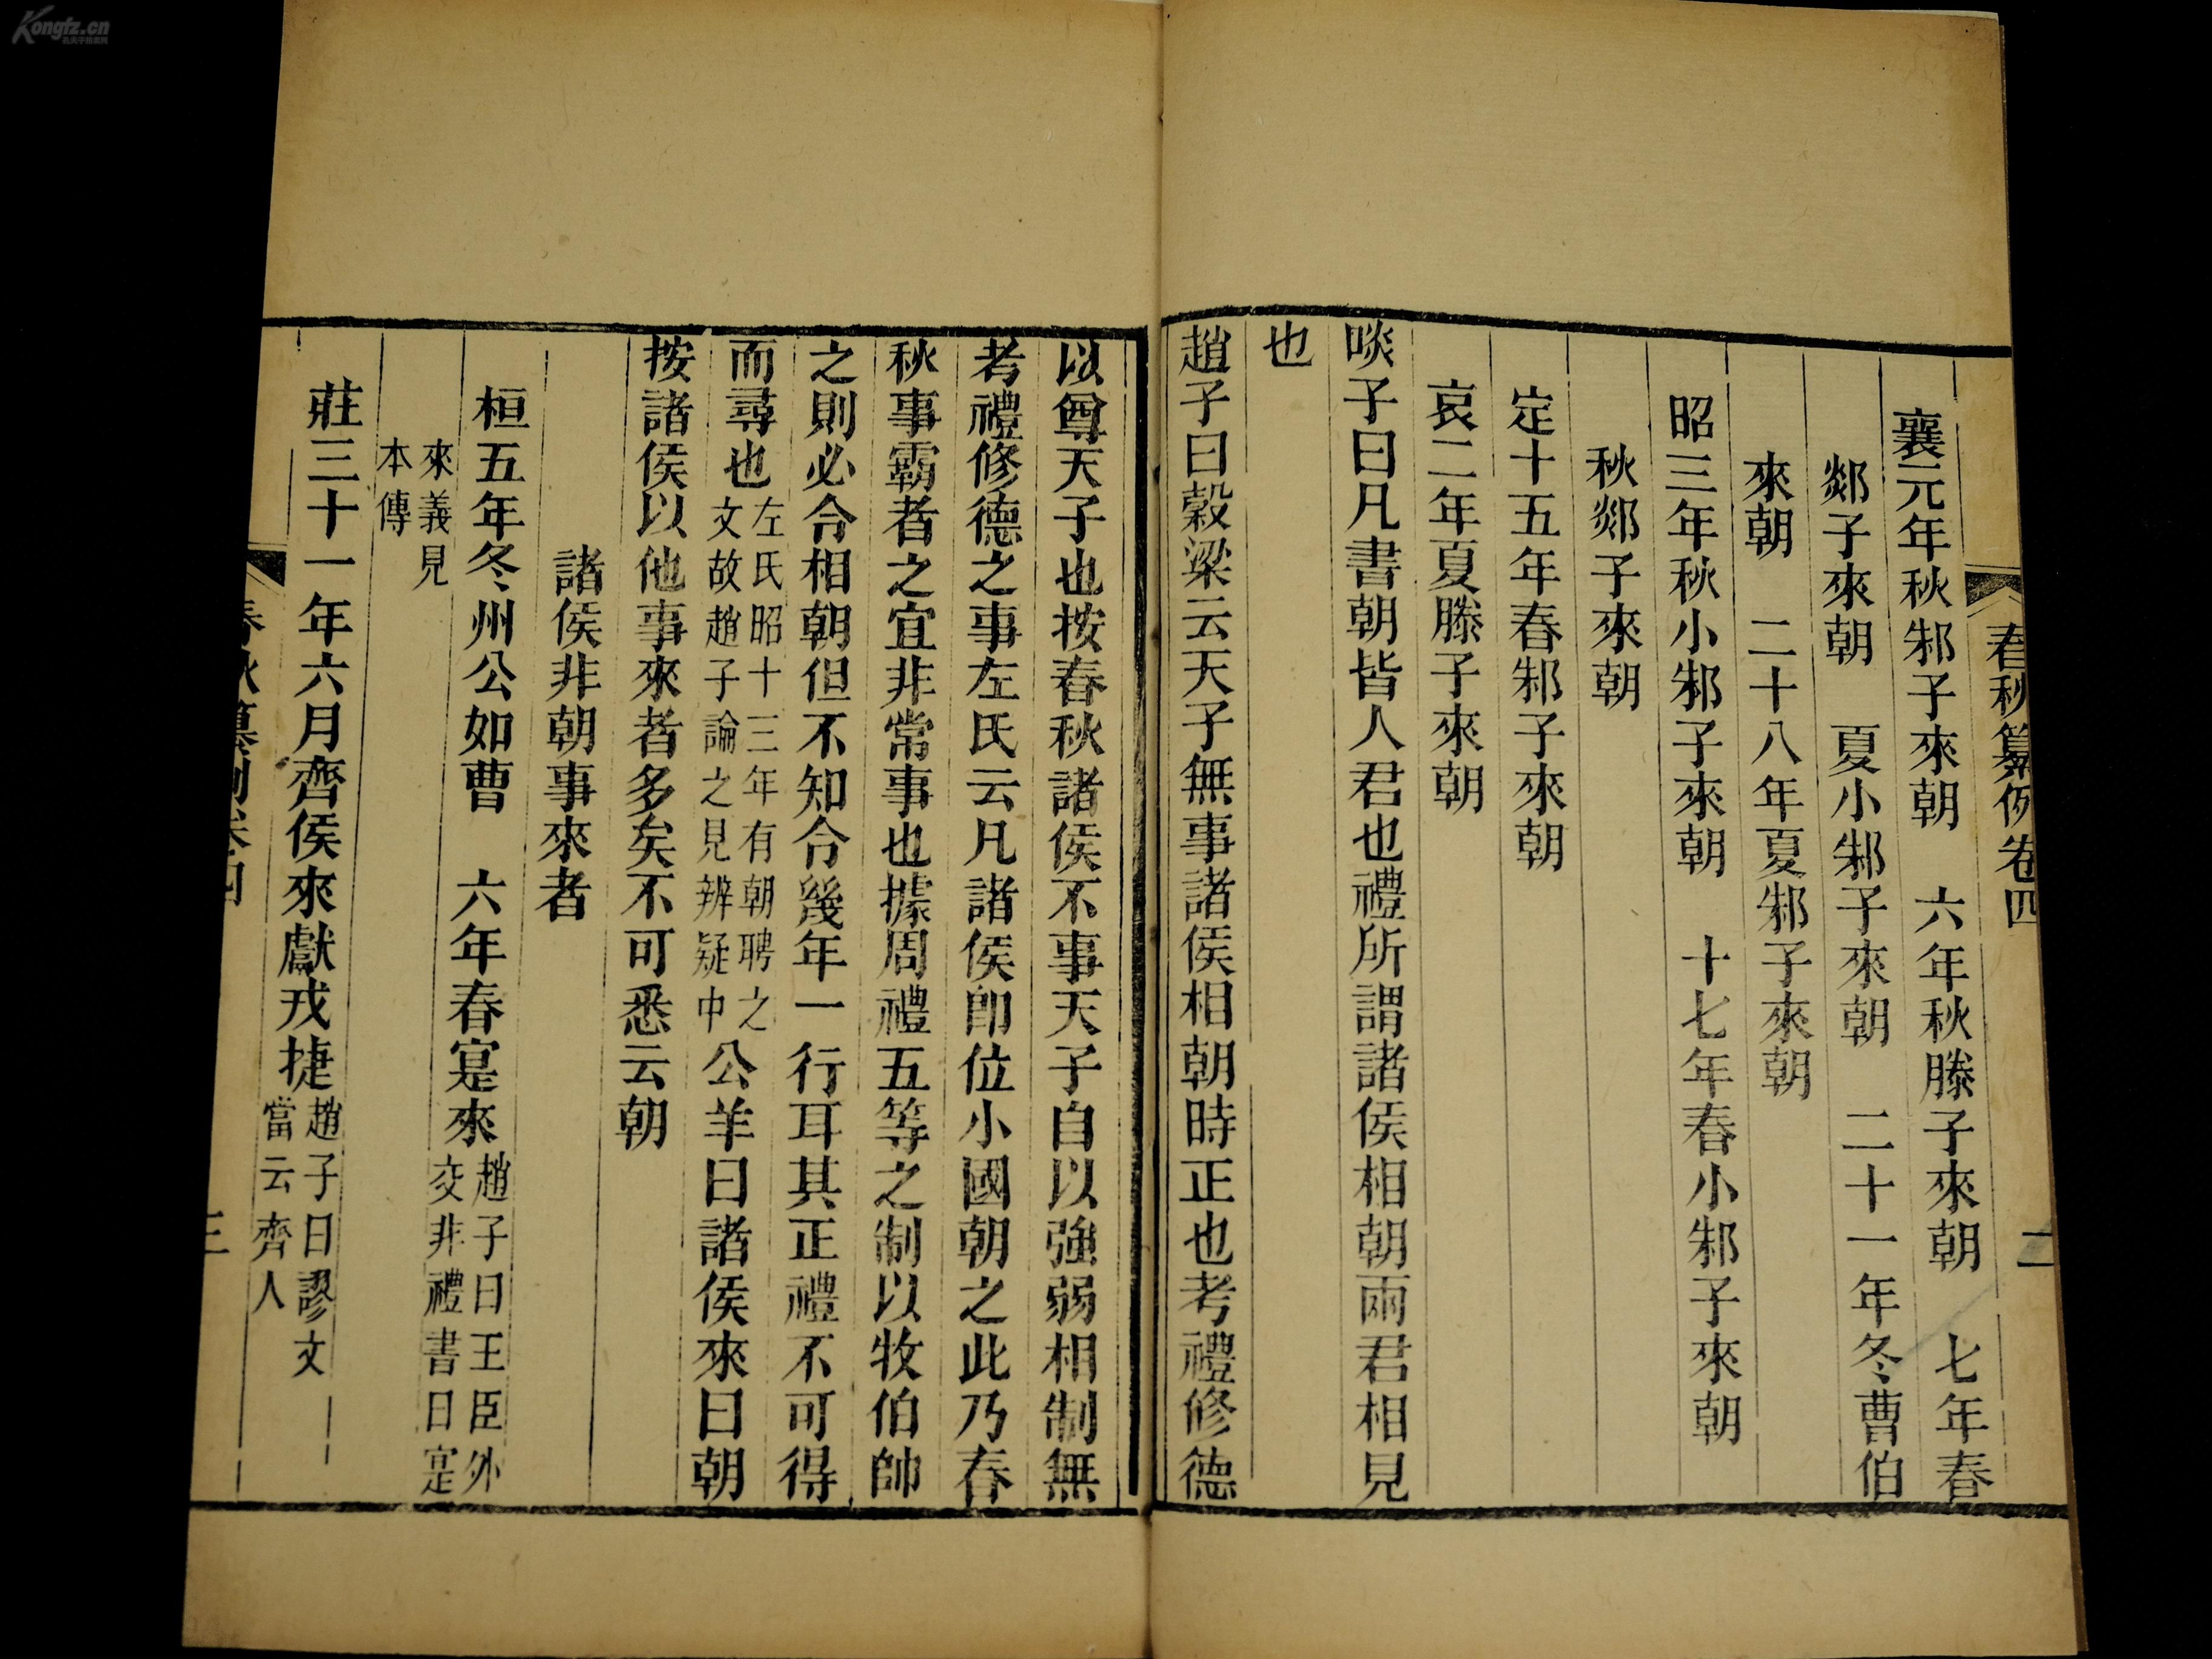 Kongfz.cn
春秋纂例卷四
二
襄元年秋邾子來朝　六年秋滕子來朝　七年春
郯子來朝　夏小邾子來朝　二十一年冬曹伯
來朝　二十八年夏邾子來朝
昭三年秋小邾子來朝　十七年春小邾子來朝
秋郯子來朝
定十五年春邾子來朝
哀二年夏滕子來朝
啖子曰凡書朝皆人君也禮所謂諸侯相朝兩君相見
也
趙子曰穀梁云天子無事諸侯相朝時正也考禮修德
以尊天子也按春秋諸侯不事天子自以強弱相制無
考禮修德之事左氏云凡諸侯卽位小國朝之此乃春
秋事霸者之宜非常事也據周禮五等之制以牧伯帥
之則必令相朝但不知令幾年一行耳其正禮不可得
而尋也左氏昭十三年有朝聘之
文故趙子論之見辨疑中公羊曰諸侯來曰朝
按諸侯以他事來者多矣不可悉云朝
諸侯非朝事來者
桓五年冬州公如曹　六年春寔來趙子曰王臣外
交非禮書曰寔
來義見
本傳
莊三十一年六月齊侯來獻戎捷趙子曰謬文
當云齊人
春秋纂例卷四
三